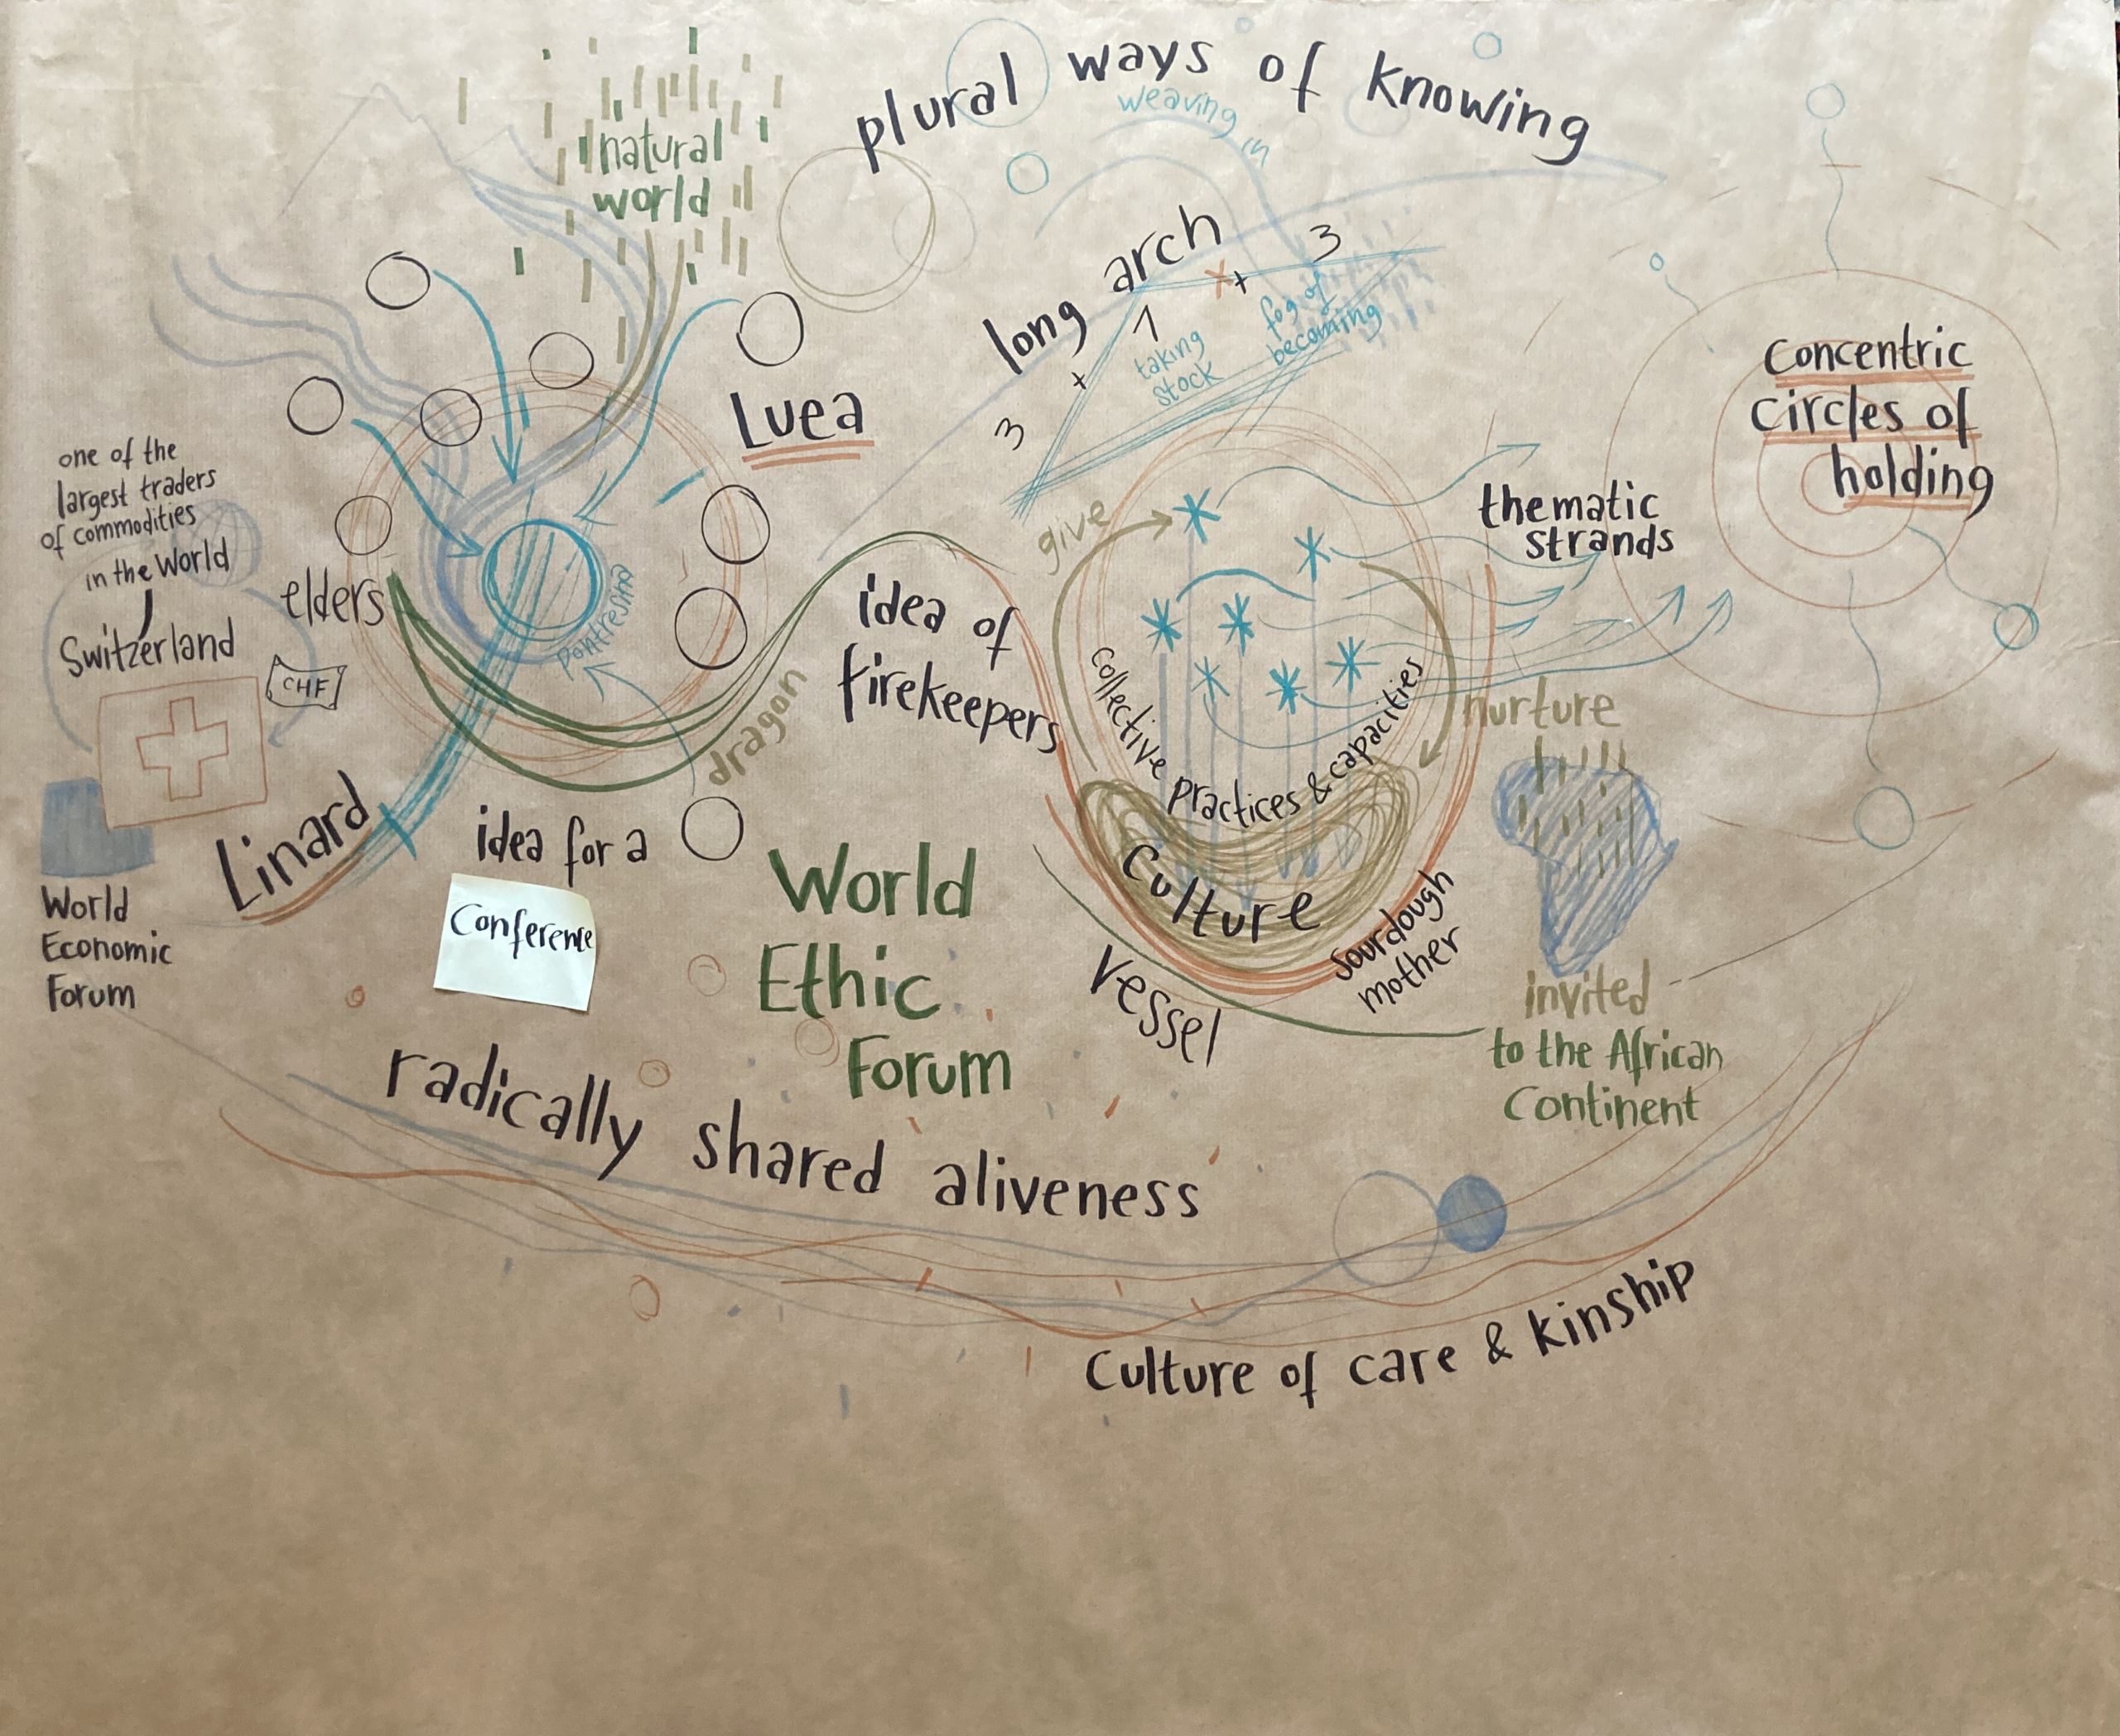 plural ways of knowing
weaving in
natural
world
long arch
3 + 1 + 3
taking
stock
fog of
becoming
Luea
Concentric
circles of
holding
one of the
largest traders
of commodities
in the World
Switzerland
CHF
World
Economic
Forum
elders
Pontresina
dragon
Linard
idea for a
Conference
idea of
firekeepers
give
thematic
strands
collective practices & capacities
nurture
Culture
sourdough
mother
Vessel
invited
to the African
Continent
World
Ethic
Forum
radically shared aliveness
Culture of care & kinship